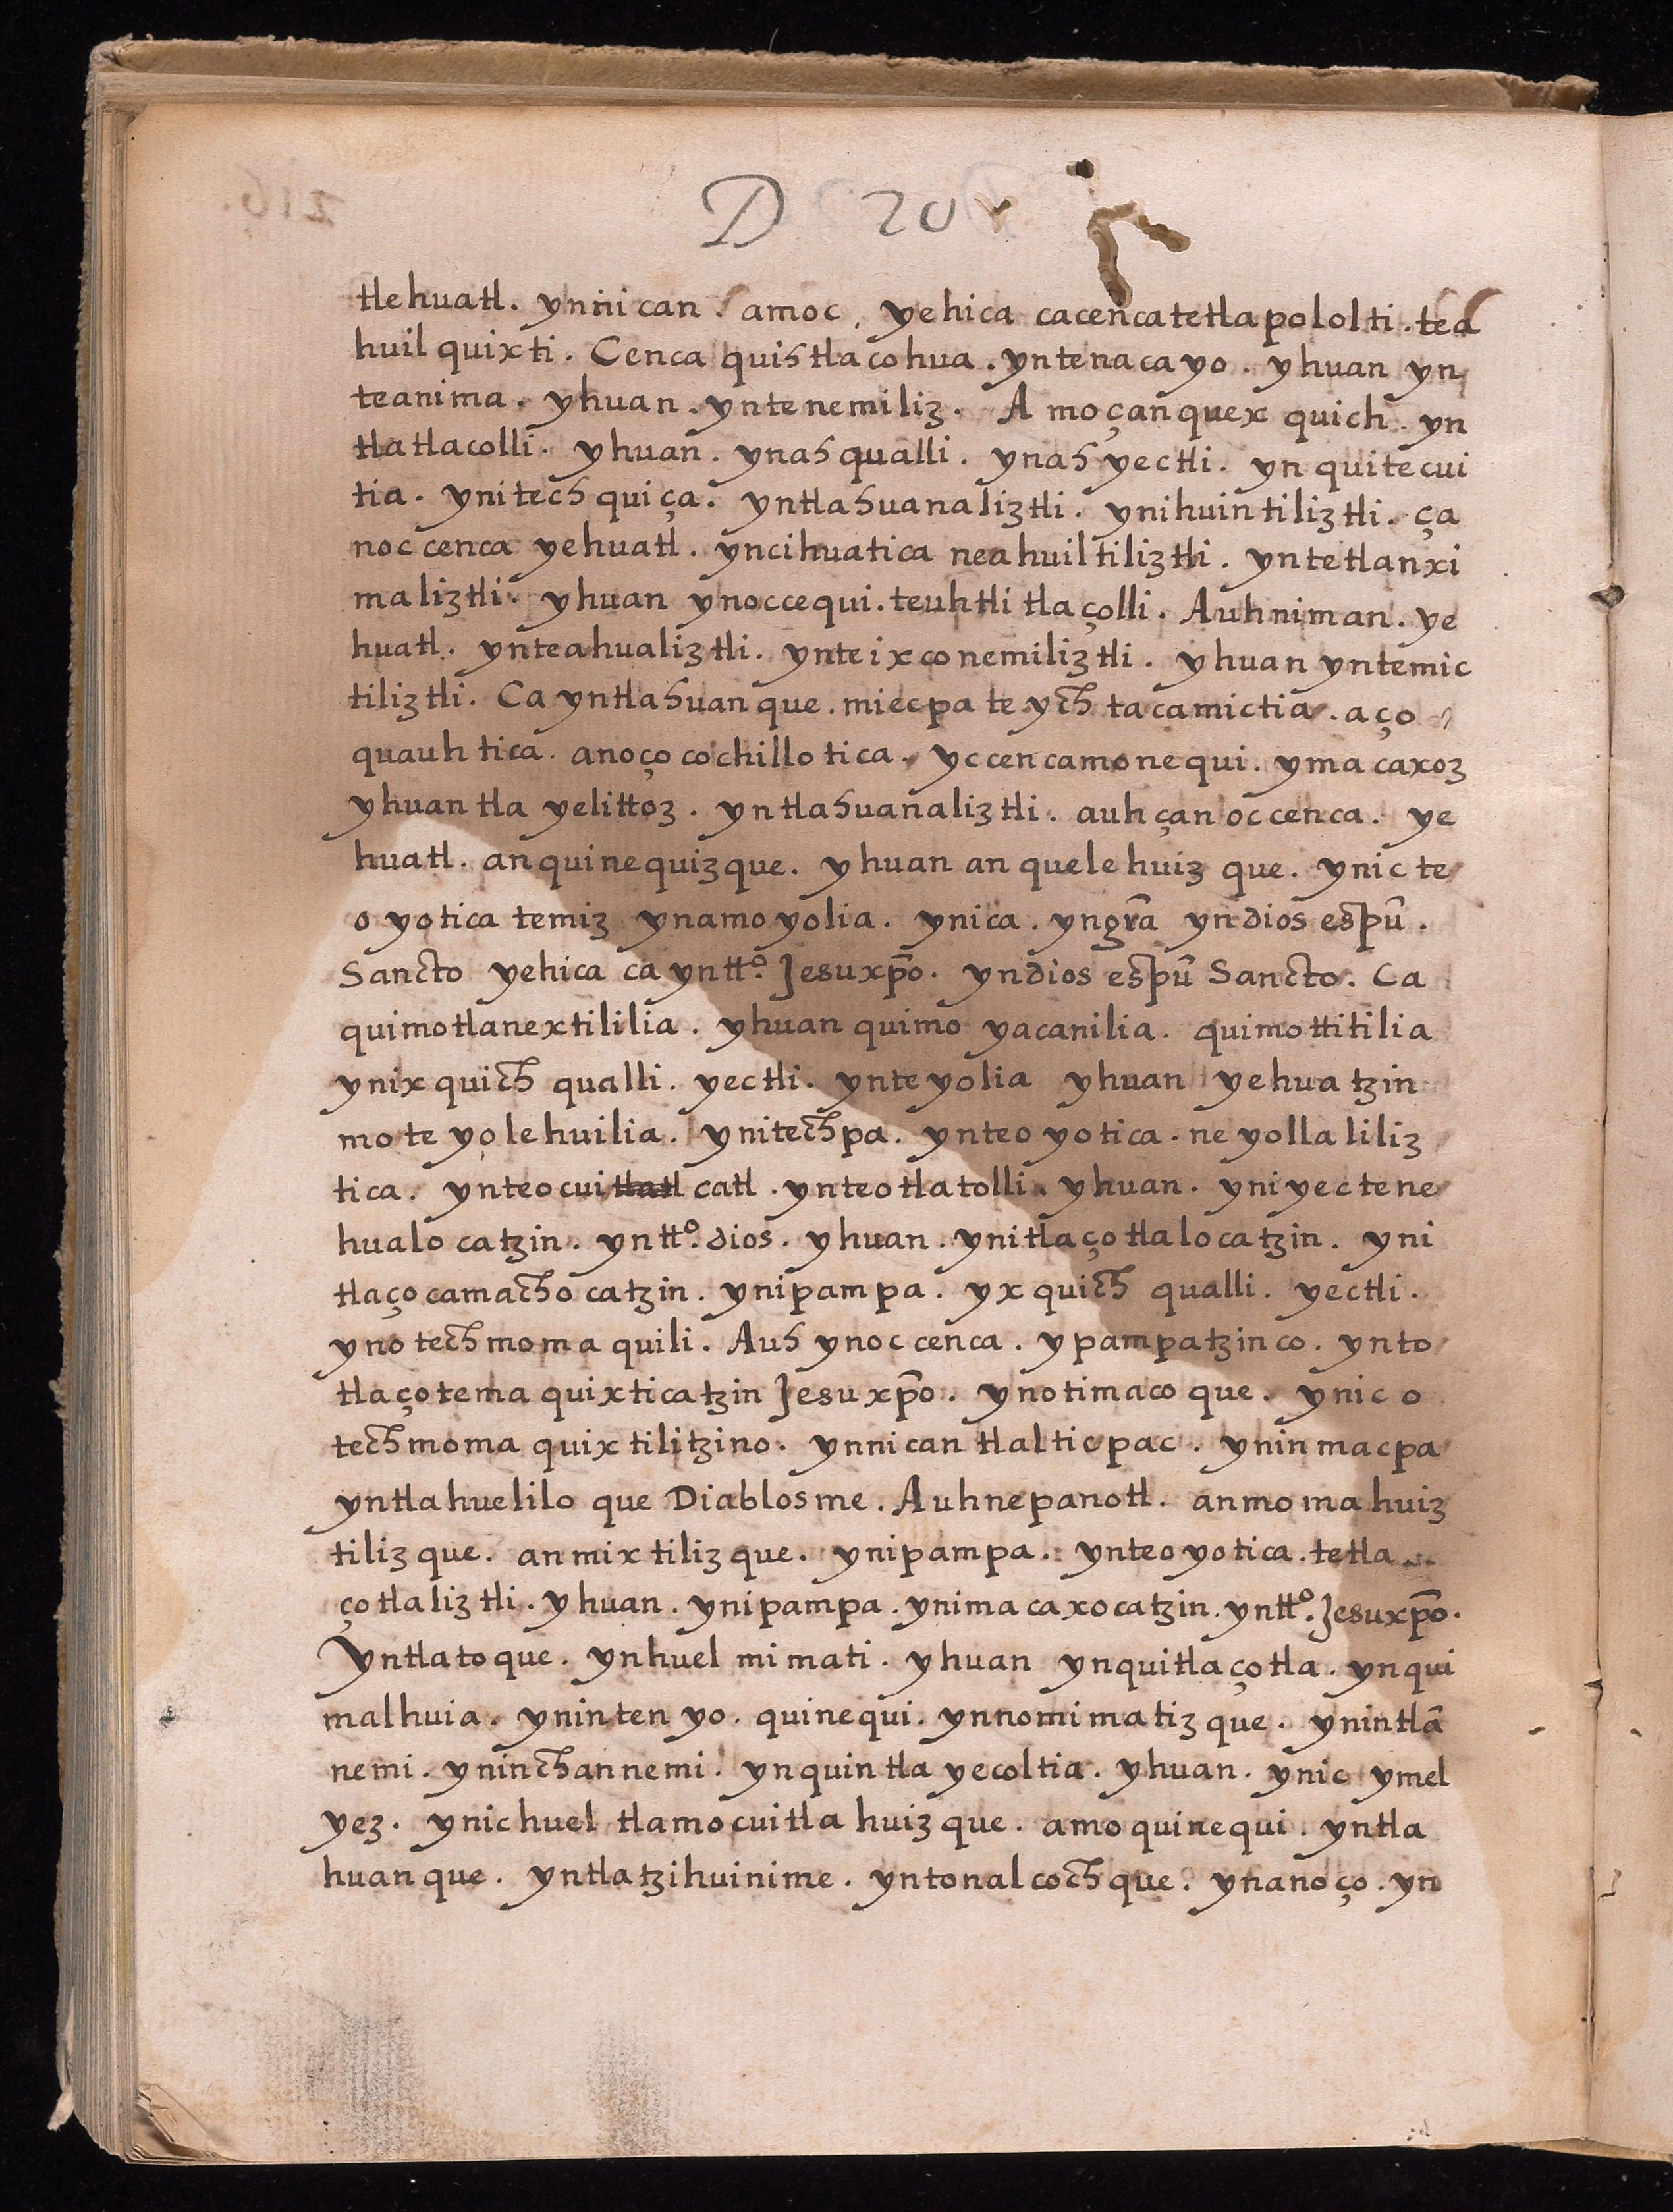 D 20v
tlehuatl. ynnican. amoc, yehica cacencatetlapololti. tea
huil quixti. Cenca quihtlacohua. yntenacayo. yhuan yn
teanima. yhuan. yntenemiliz. Amoçanquexquich. yn
tlatlacolli. yhuan. ynahqualli. ynahyectli. ynquitecui
tia. ynitechquiça. yntlahuanaliztli. ynihuintiliztli. ça
noccenca yehuatl. yncihuatica neahuiltiliztli. yntetlanxi
maliztli. yhuan ynoccequi. teuhtli tlaçolli. Auhniman. ye
huatl. ynteahualiztli. ynteixconemiliztli. yhuan yntemic
tiliztli. Ca yntlahuanque. miecpa te ych tacamictia. aço
quauhtica. anoço cochillotica. yccencamonequi. ymacaxoz
yhuan tlayelittoz. yntlahuanaliztli. auhçanoccenca. ye
huatl. anquinequizque. yhuan anquelehuizque. ynic te
oyotica temiz ynamoyolia. ynica. yngrã yndios espũ.
Sancto yehica ca yntt.º Jesuxp̃o. yndios espũ Sancto. Ca
quimotlanextililia. yhuan quimoyacanilia. quimottitilia
ynixquich qualli. yectli. ynteyolia yhuan yehuatzin
moteyolehuilia. ynitechpa. ynteoyotica. neyollaliliz
tica. ynteocuitlatl catl. ynteotlatolli. yhuan. yniyectene
hualocatzin. yntt.º dios. yhuan. ynitlaçotlalocatzin. yni
tlaçocamachocatzin. ynipampa. yxquich qualli. yectli.
ynotechmomaquili. Auh ynoccenca. ypampatzinco. ynto
tlaçotemaquixticatzin Jesuxp̃o. ynotimacoque. ynic o
techmomaquixtilitzino. ynnican tlalticpac. yninmacpa
yntlahueliloque Diablosme. Auhnepanotl. anmomahuiz
tilizque. anmixtilizque. ynipampa. ynteoyotica. tetla
çotlaliztli. yhuan. ynipampa. ynimacaxocatzin. yntt.º Jesuxp̃o.
Yntlatoque. ynhuel mimati. yhuan ynquitlaçotla. ynqui
malhuia. ynintenyo. quinequi. ynnomimatizque. ynintlã
nemi. yninchannemi. ynquintlayecoltia. yhuan. ynic ymel
yez. ynichuel tlamocuitlahuizque. amo quinequi. yntla
huanque. yntlatzihuinime. yntonalcochque. ynanoço. yn